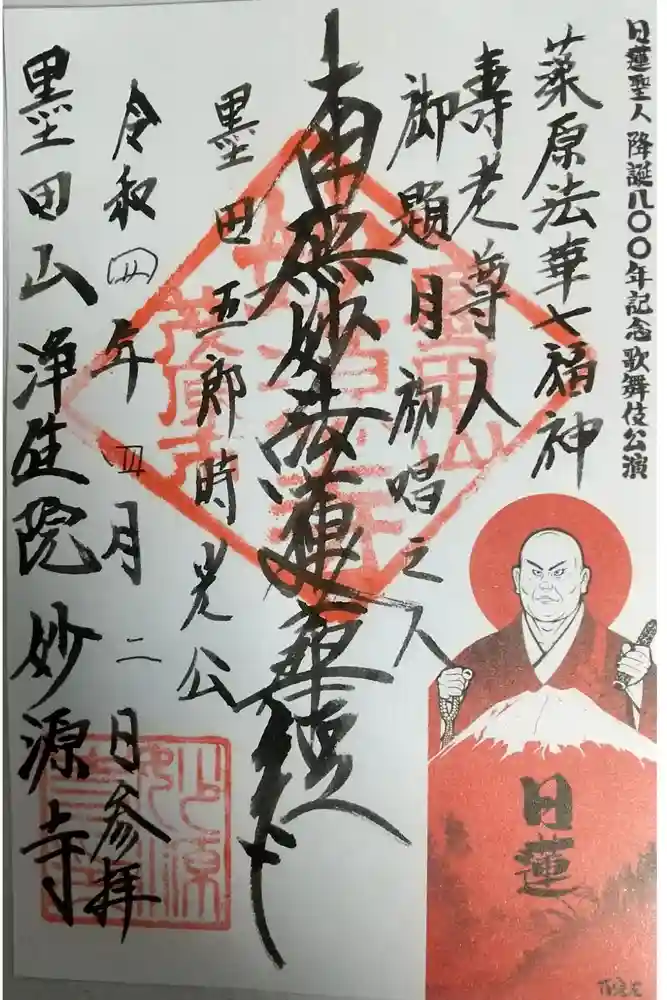 日蓮聖人降誕八〇〇年記念歌舞伎公演
藻原法華七福神
壽老尊人
御題目初唱之人
南無妙法蓮華経
墨田五郎時光公
令和四年四月二日参拝
墨田山浄延院妙源寺
妙源寺
茂原市
日蓮